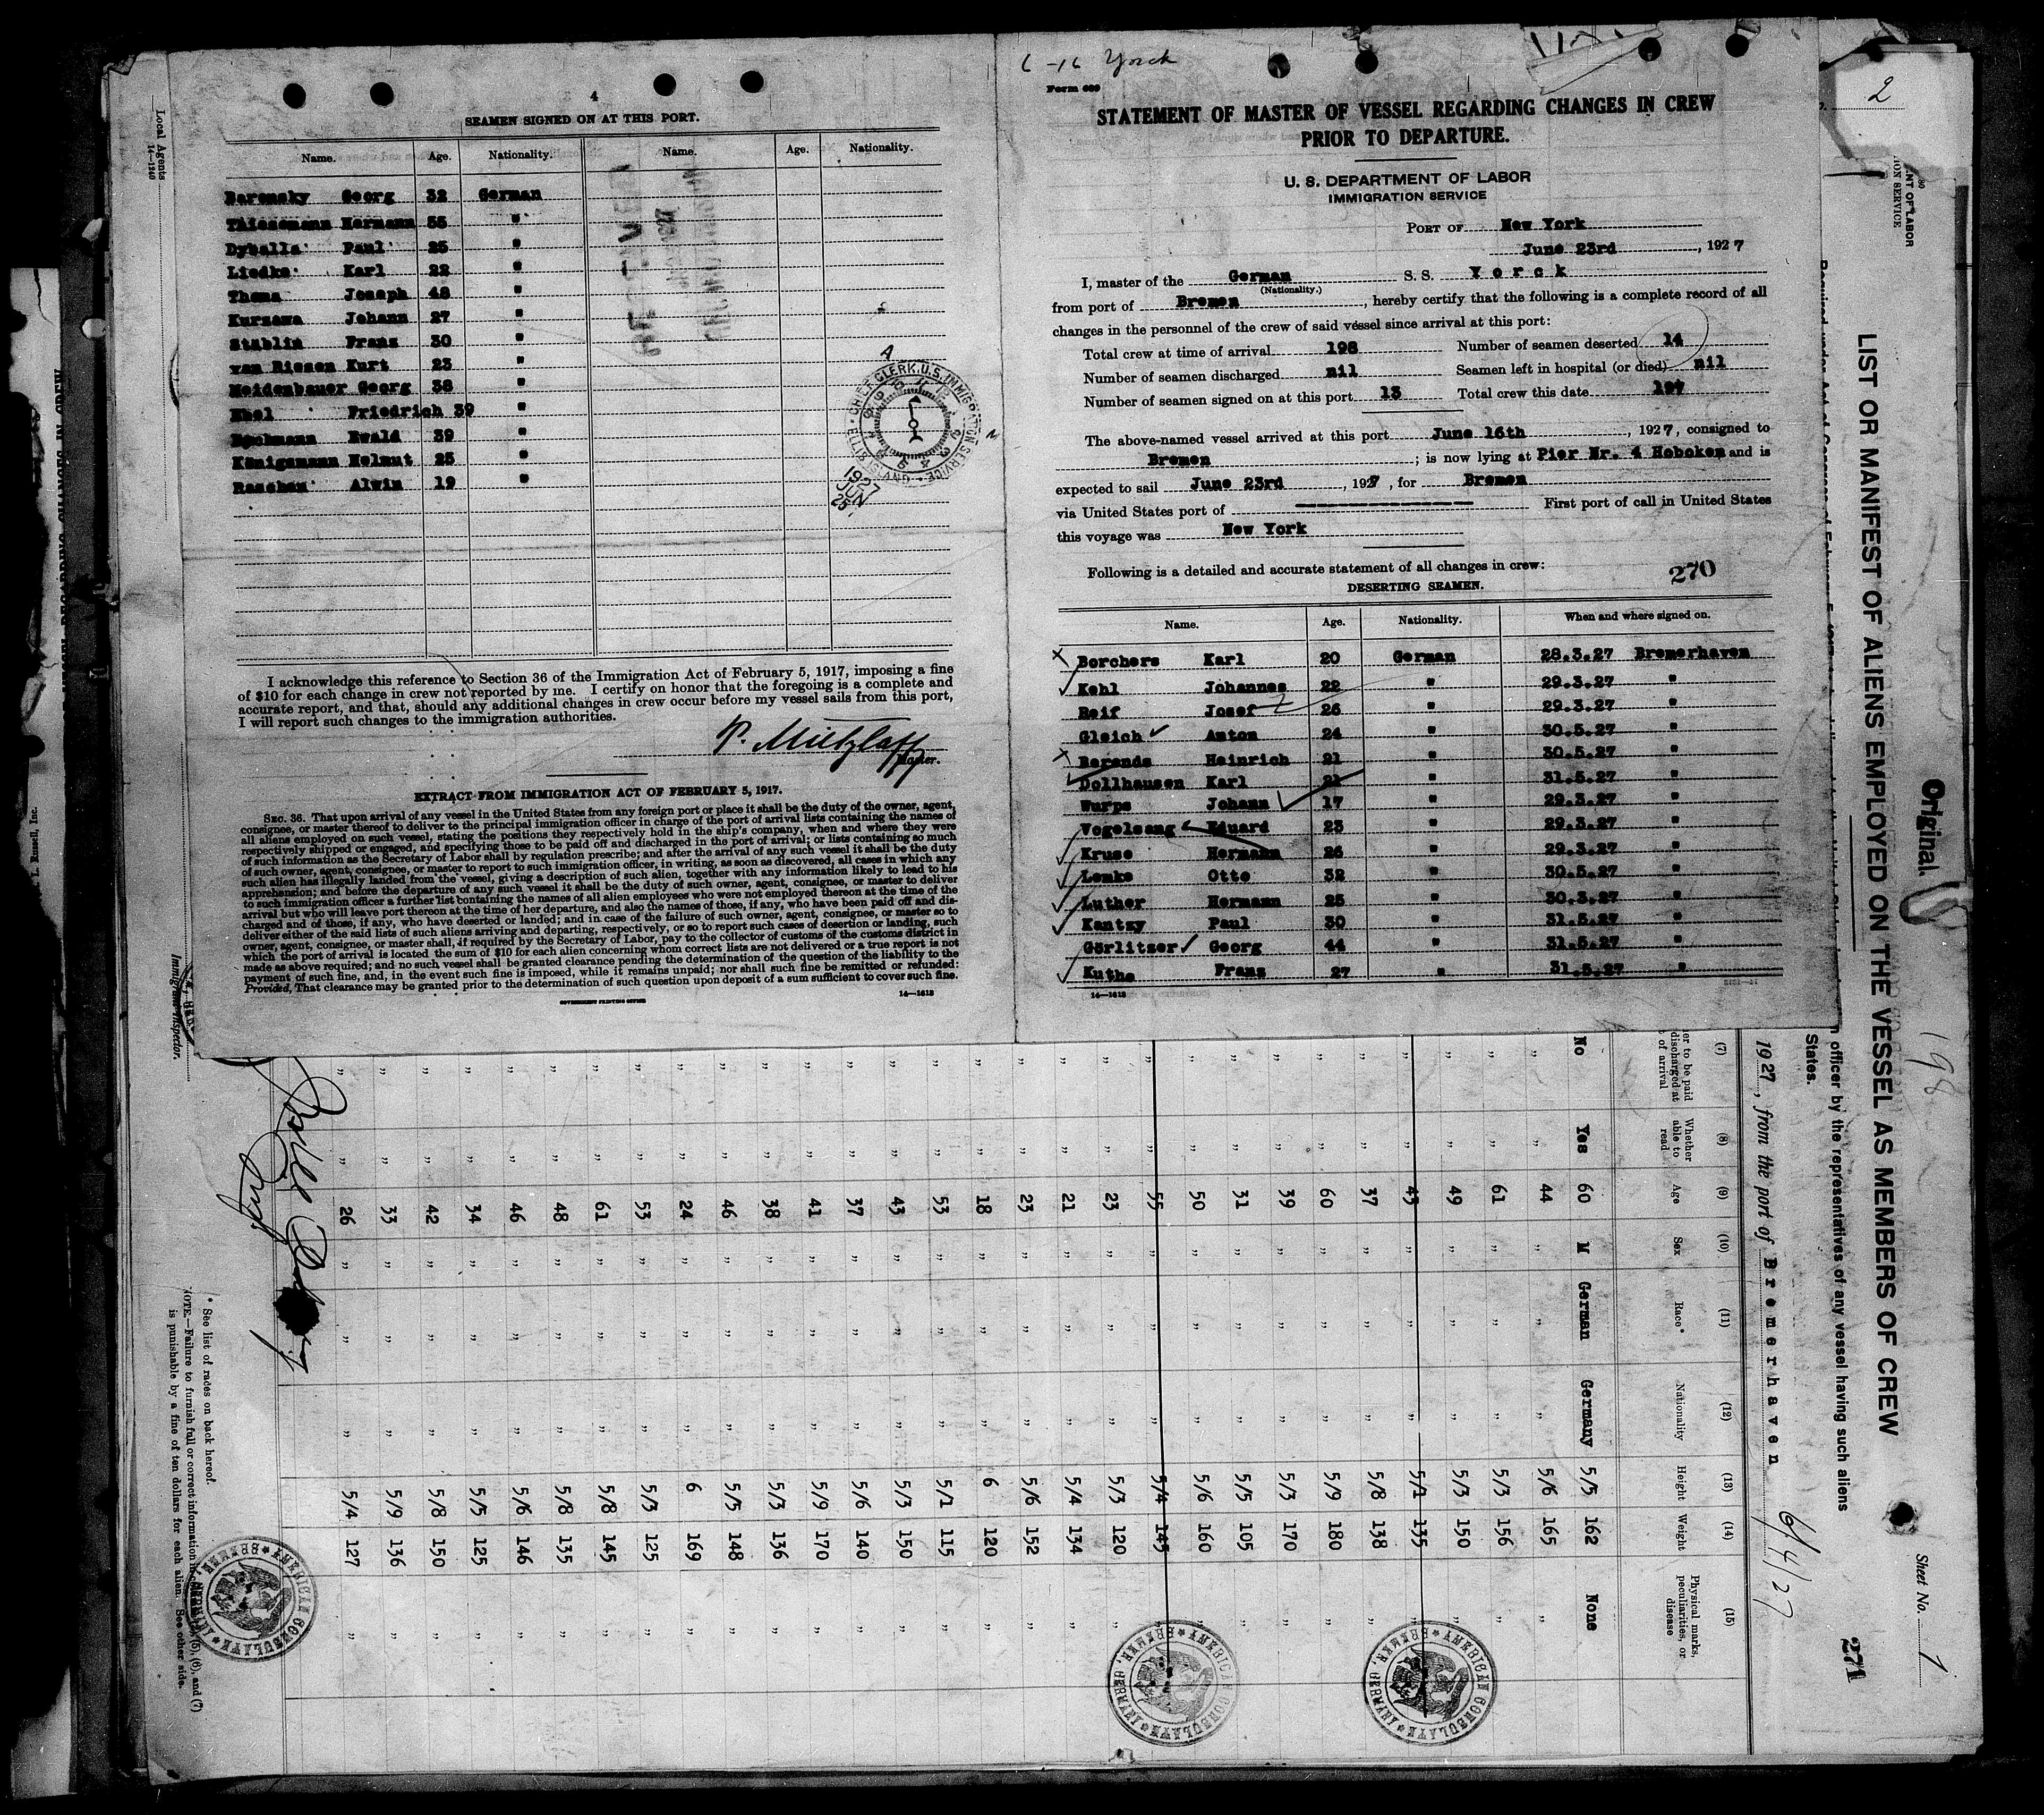 4
SEAMEN SIGNED ON AT THIS PORT.
Name. Age. Nationality. Name. Age. Nationality.
Baronsky Georg 32 German
Thiesemann Hermann 55 "
Dyballa Paul 25 "
Liedke Karl 22 "
Thoma Joseph 48 "
Kurzawa Johann 27 "
Stüblin Franz 30 "
van Riesen Kurt 23 "
Meidenbauer Georg 38 "
Ebel Friedrich 39 "
Bochmann Ewald 39 "
Königsmann Helmut 25 "
Raschen Alwin 19 "
CHIEF CLERK, U.S. IMMIGRATION SERVICE
1927
JUN
25
I acknowledge this reference to Section 36 of the Immigration Act of February 5, 1917, imposing a fine
of $10 for each change in crew not reported by me. I certify on honor that the foregoing is a complete and
accurate report, and that, should any additional changes in crew occur before my vessel sails from this port,
I will report such changes to the immigration authorities.
P. Mützlaff
Master.
EXTRACT FROM IMMIGRATION ACT OF FEBRUARY 5, 1917.
SEC. 36. That upon arrival of any vessel in the United States from any foreign port or place it shall be the duty of the owner, agent,
consignee, or master thereof to deliver to the principal immigration officer in charge of the port of arrival lists containing the names of
all aliens employed on such vessel, stating the positions they respectively hold in the ship's company, when and where they were
respectively shipped or engaged, and specifying those to be paid off and discharged in the port of arrival; or lists containing so much
of such information as the Secretary of Labor shall by regulation prescribe; and after the arrival of any such vessel it shall be the duty
of such owner, agent, consignee, or master to report to such immigration officer, in writing, as soon as discovered, all cases in which any
such alien has illegally landed from the vessel, giving a description of such alien, together with any information likely to lead to his
apprehension; and before the departure of any such vessel it shall be the duty of such owner, agent, consignee, or master to deliver
to such immigration officer a further list containing the names of all alien employees who were not employed thereon at the time of the
arrival but who will leave port thereon at the time of her departure, and also the names of those, if any, who have been paid off and dis-
charged and of those, if any, who have deserted or landed; and in case of the failure of such owner, agent, consignee, or master so to
deliver either of the said lists of such aliens arriving and departing, respectively, or so to report such cases of desertion or landing, such
owner, agent, consignee, or master, shall, if required by the Secretary of Labor, pay to the collector of customs of the customs district in
which the port of arrival is located the sum of $10 for each alien concerning whom correct lists are not delivered or a true report is not
made as above required; and no such vessel shall be granted clearance pending the determination of the question of the liability to the
payment of such fine, and, in the event such fine is imposed, while it remains unpaid; nor shall such fine be remitted or refunded:
Provided, That clearance may be granted prior to the determination of such question upon deposit of a sum sufficient to cover such fine.
GOVERNMENT PRINTING OFFICE 14—1613
6 -16 Yorck
Form 689
STATEMENT OF MASTER OF VESSEL REGARDING CHANGES IN CREW
PRIOR TO DEPARTURE.
U. S. DEPARTMENT OF LABOR
IMMIGRATION SERVICE
PORT OF New York
June 23rd, 1927
I, master of the German S. S. Yorck
(Nationality.)
from port of Bremen, hereby certify that the following is a complete record of all
changes in the personnel of the crew of said vessel since arrival at this port:
Total crew at time of arrival 198 Number of seamen deserted 14
Number of seamen discharged nil Seamen left in hospital (or died) nil
Number of seamen signed on at this port 13 Total crew this date 197
The above-named vessel arrived at this port June 16th, 1927, consigned to
Bremen; is now lying at Pier Nr. 4 Hoboken and is
expected to sail June 23rd, 1927, for Bremen
via United States port of First port of call in United States
this voyage was New York
Following is a detailed and accurate statement of all changes in crew:
270
DESERTING SEAMEN.
Name. Age. Nationality. When and where signed on.
Borchers Karl 20 German 28.3.27 Bremerhaven
Kehl Johannes 22 " 29.3.27 "
Reif Josef 26 " 29.3.27 "
Gleich Anton 24 " 30.5.27 "
Barends Heinrich 21 " 30.5.27 "
Dollhausen Karl 21 " 31.5.27 "
Wurps Johann 17 " 29.3.27 "
Vogelsang Eduard 23 " 29.3.27 "
Kruse Hermann 26 " 29.3.27 "
Lemke Otto 32 " 30.5.27 "
Luther Hermann 25 " 30.3.27 "
Kantzy Paul 30 " 31.5.27 "
Görlitzer Georg 44 " 31.5.27 "
Kuthe Franz 27 " 31.5.27 "
14—1613
2
Original
198
LIST OR MANIFEST OF ALIENS EMPLOYED ON THE VESSEL AS MEMBERS OF CREW
Sheet No. 1
271
officer by the representatives of any vessel having such aliens
States.
1927, from the port of Bremerhaven 6/4/27
(7) (8) (9) (10) (11) (12) (13) (14) (15)
Whether able to read Age Sex Race* Nationality Height Weight Physical marks, peculiarities, or disease
No Yes 60 M German Germany 5/5 162 None
" " 44 " " " 5/6 165 "
" " 61 " " " 5/3 156 "
" " 49 " " " 5/3 150 "
" " 43 " " " 5/1 135 "
" " 37 " " " 5/8 138 "
" " 60 " " " 5/9 180 "
" " 39 " " " 5/3 170 "
" " 31 " " " 5/5 105 "
" " 50 " " " 5/6 160 "
" " 55 " " " 5/4 145 "
" " 23 " " " 5/3 120 "
" " 21 " " " 5/4 134 "
" " 23 " " " 5/6 152 "
" " 18 " " " 6 120 "
" " 53 " " " 5/1 115 "
" " 43 " " " 5/3 150 "
" " 37 " " " 5/6 140 "
" " 41 " " " 5/9 170 "
" " 38 " " " 5/3 136 "
" " 46 " " " 5/5 148 "
" " 24 " " " 6 169 "
" " 53 " " " 5/3 125 "
" " 61 " " " 5/8 145 "
" " 48 " " " 5/8 135 "
" " 46 " " " 5/6 146 "
" " 34 " " " 5/5 125 "
" " 42 " " " 5/8 150 "
" " 33 " " " 5/9 136 "
" " 26 " " " 5/4 127 "
AMERICAN CONSULATE BREMEN, GERMANY
AMERICAN CONSULATE BREMEN, GERMANY
AMERICAN CONSULATE BREMEN, GERMANY
* See list of races on back hereof.
NOTE.—Failure to furnish full or correct information (5), (6), and (7)
is punishable by a fine of ten dollars for each alien. See other side.
Immigrant Inspector.
Local Agents
14—1240